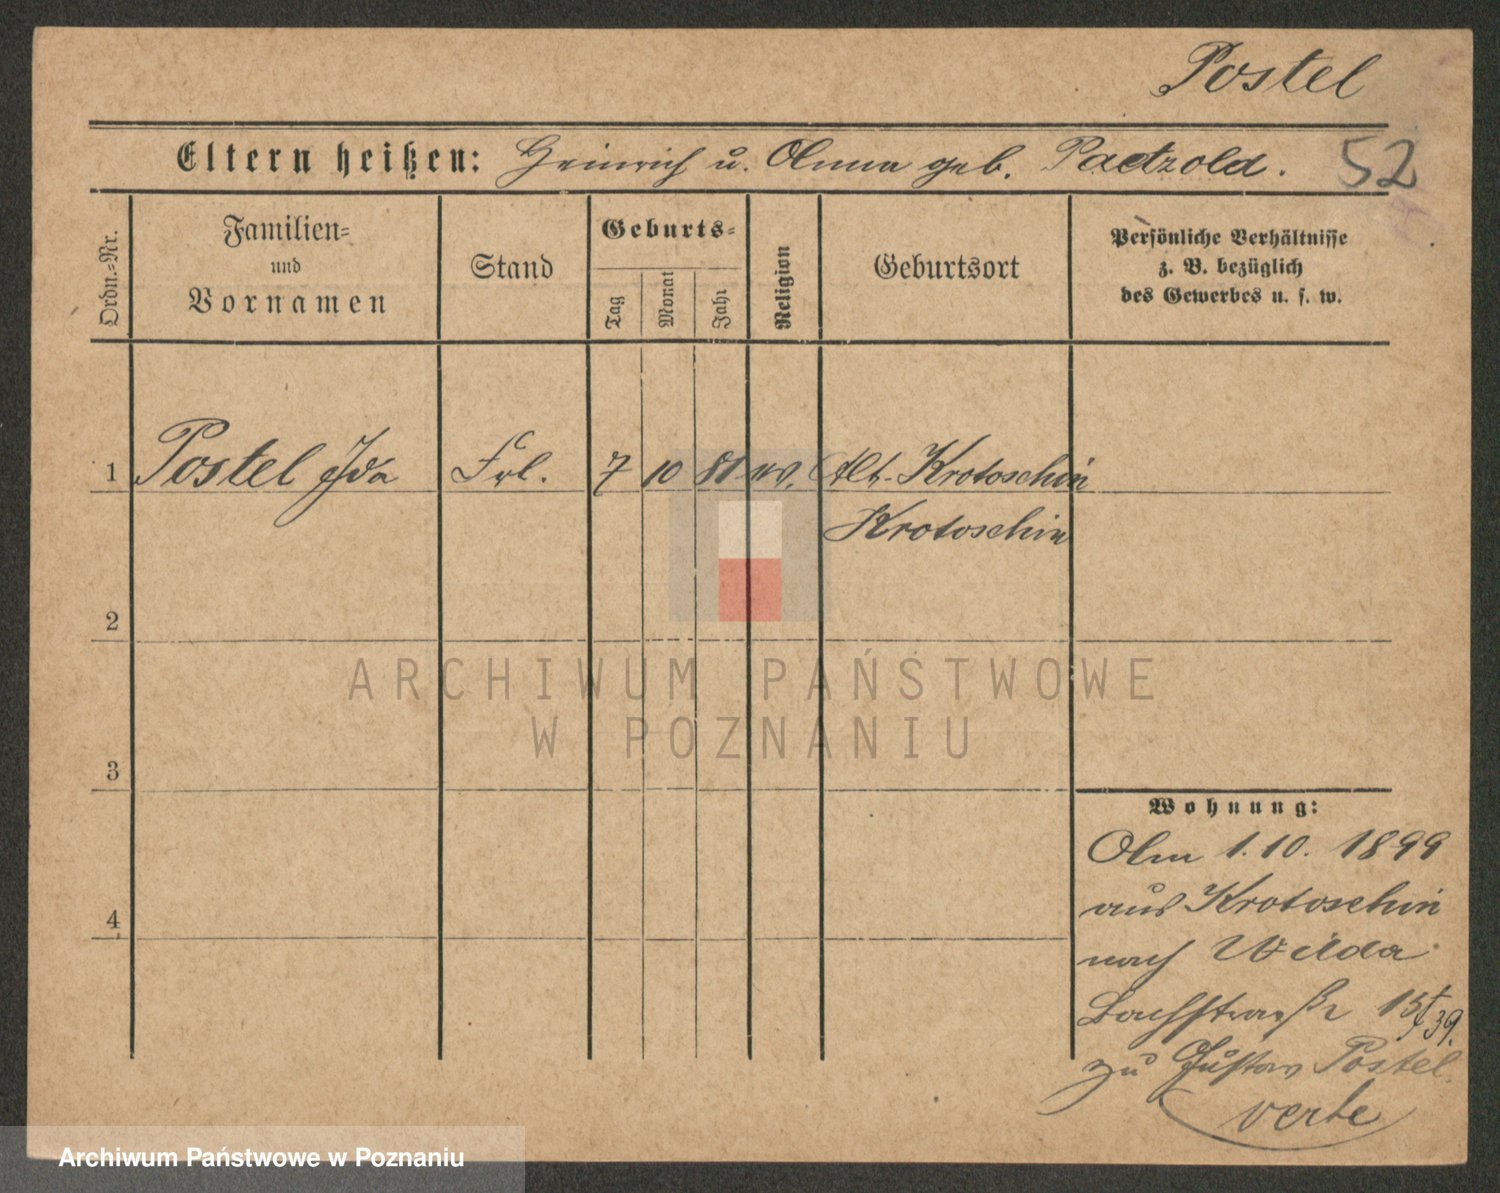 Postel
Eltern heißen: Heinrich u. Anna geb. Paetzold.
52
Ordn.-Nr.
Familien-
und
Vornamen
Stand
Geburts-
Tag
Monat
Jahr
Religion
Geburtsort
Persönliche Verhältnisse
z. B. bezüglich
des Gewerbes u. s. w.
1 Postel Ida Frl. 7 10 81 ev. Alt-Krotoschin
Krotoschin
2
3
4
Wohnung:
Am 1.10. 1899
aus Krotoschin
nach Wilda
Bachstraße 15 / 39.
zu Gustav Postel.
verte
ARCHIWUM PAŃSTWOWE
W POZNANIU
Archiwum Państwowe w Poznaniu